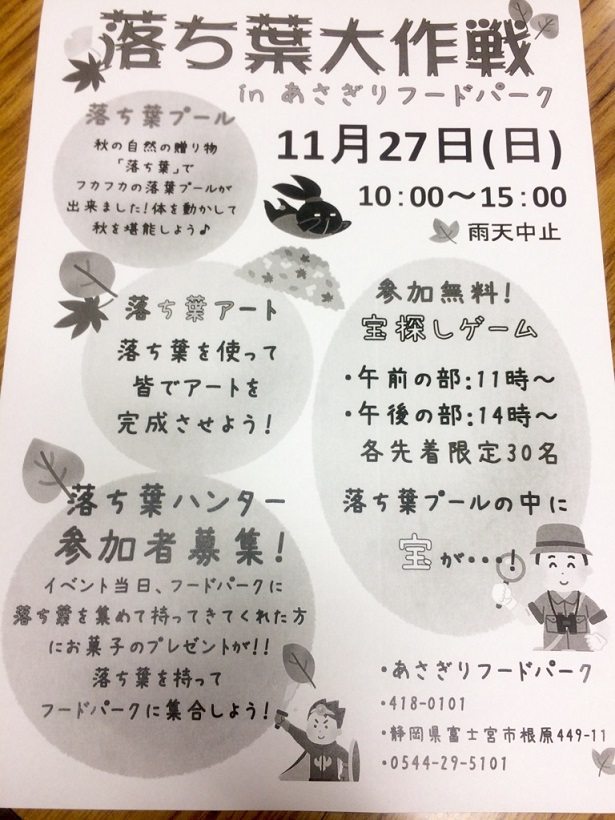 落ち葉大作戦
in あさぎりフードパーク
11月27日(日)
10:00～15:00
雨天中止
落ち葉プール
秋の自然の贈り物
「落ち葉」で
フカフカの落葉プールが
出来ました!体を動かして
秋を堪能しよう♪
落ち葉アート
落ち葉を使って
皆でアートを
完成させよう!
参加無料!
宝探しゲーム
・午前の部:11時～
・午後の部:14時～
各先着限定30名
落ち葉プールの中に
宝が・・・!
落ち葉ハンター
参加者募集!
イベント当日、フードパークに
落ち葉を集めて持ってきてくれた方
にお菓子のプレゼントが!!
落ち葉を持って
フードパークに集合しよう!
・あさぎりフードパーク
・418-0101
・静岡県富士宮市根原449-11
・0544-29-5101